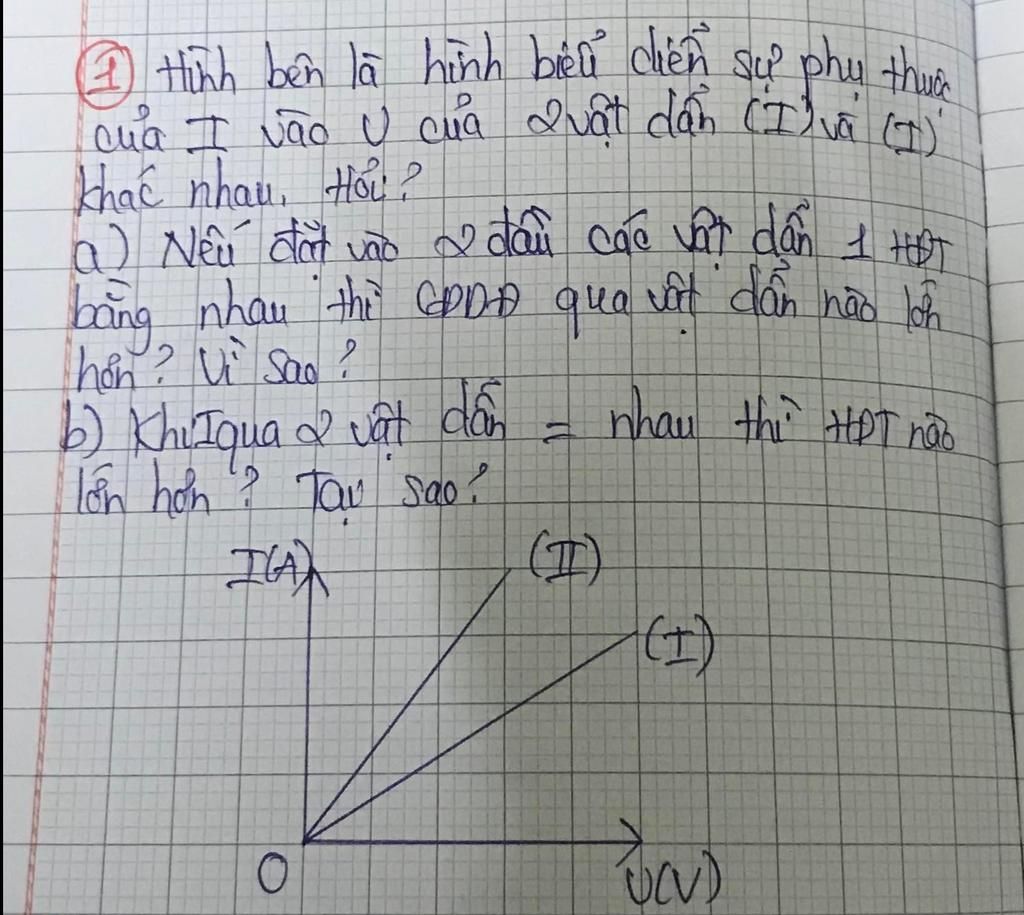 1 Hình bên là hình biểu diễn sự phụ thuộc
của I vào U của 2 vật dẫn (I) và (I)
khác nhau. Hỏi?
a) Nếu đặt vào 2 đầu các vật dẫn 1 HĐT
bằng nhau thì CĐDĐ qua vật dẫn nào lớn
hơn? Vì sao?
b) Khi I qua 2 vật dẫn = nhau thì HĐT nào
lớn hơn? Tại sao?
I(A)
(II)
(I)
O
U(V)